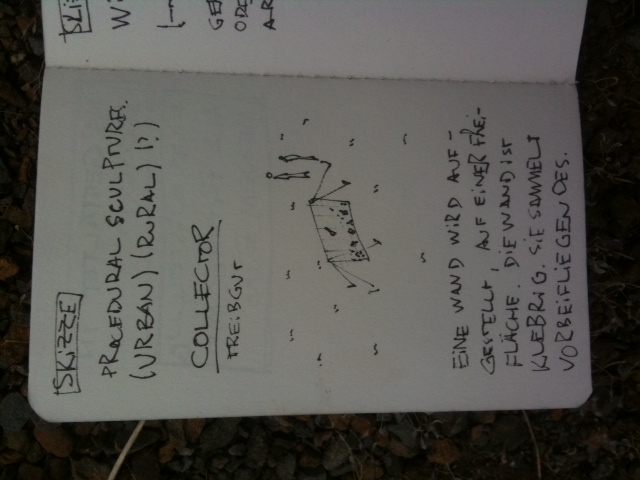 SKIZZE
PROCEDURAL SCULPTURES.
(URBAN) (RURAL) (!?)
COLLECTOR
TREIBGUT
EINE WAND WIRD AUF-
GESTELLT, AUF EINER FREI-
FLÄCHE. DIE WAND IST
KLEBRIG. SIE SAMMELT
VORBEIFLIEGENDES.